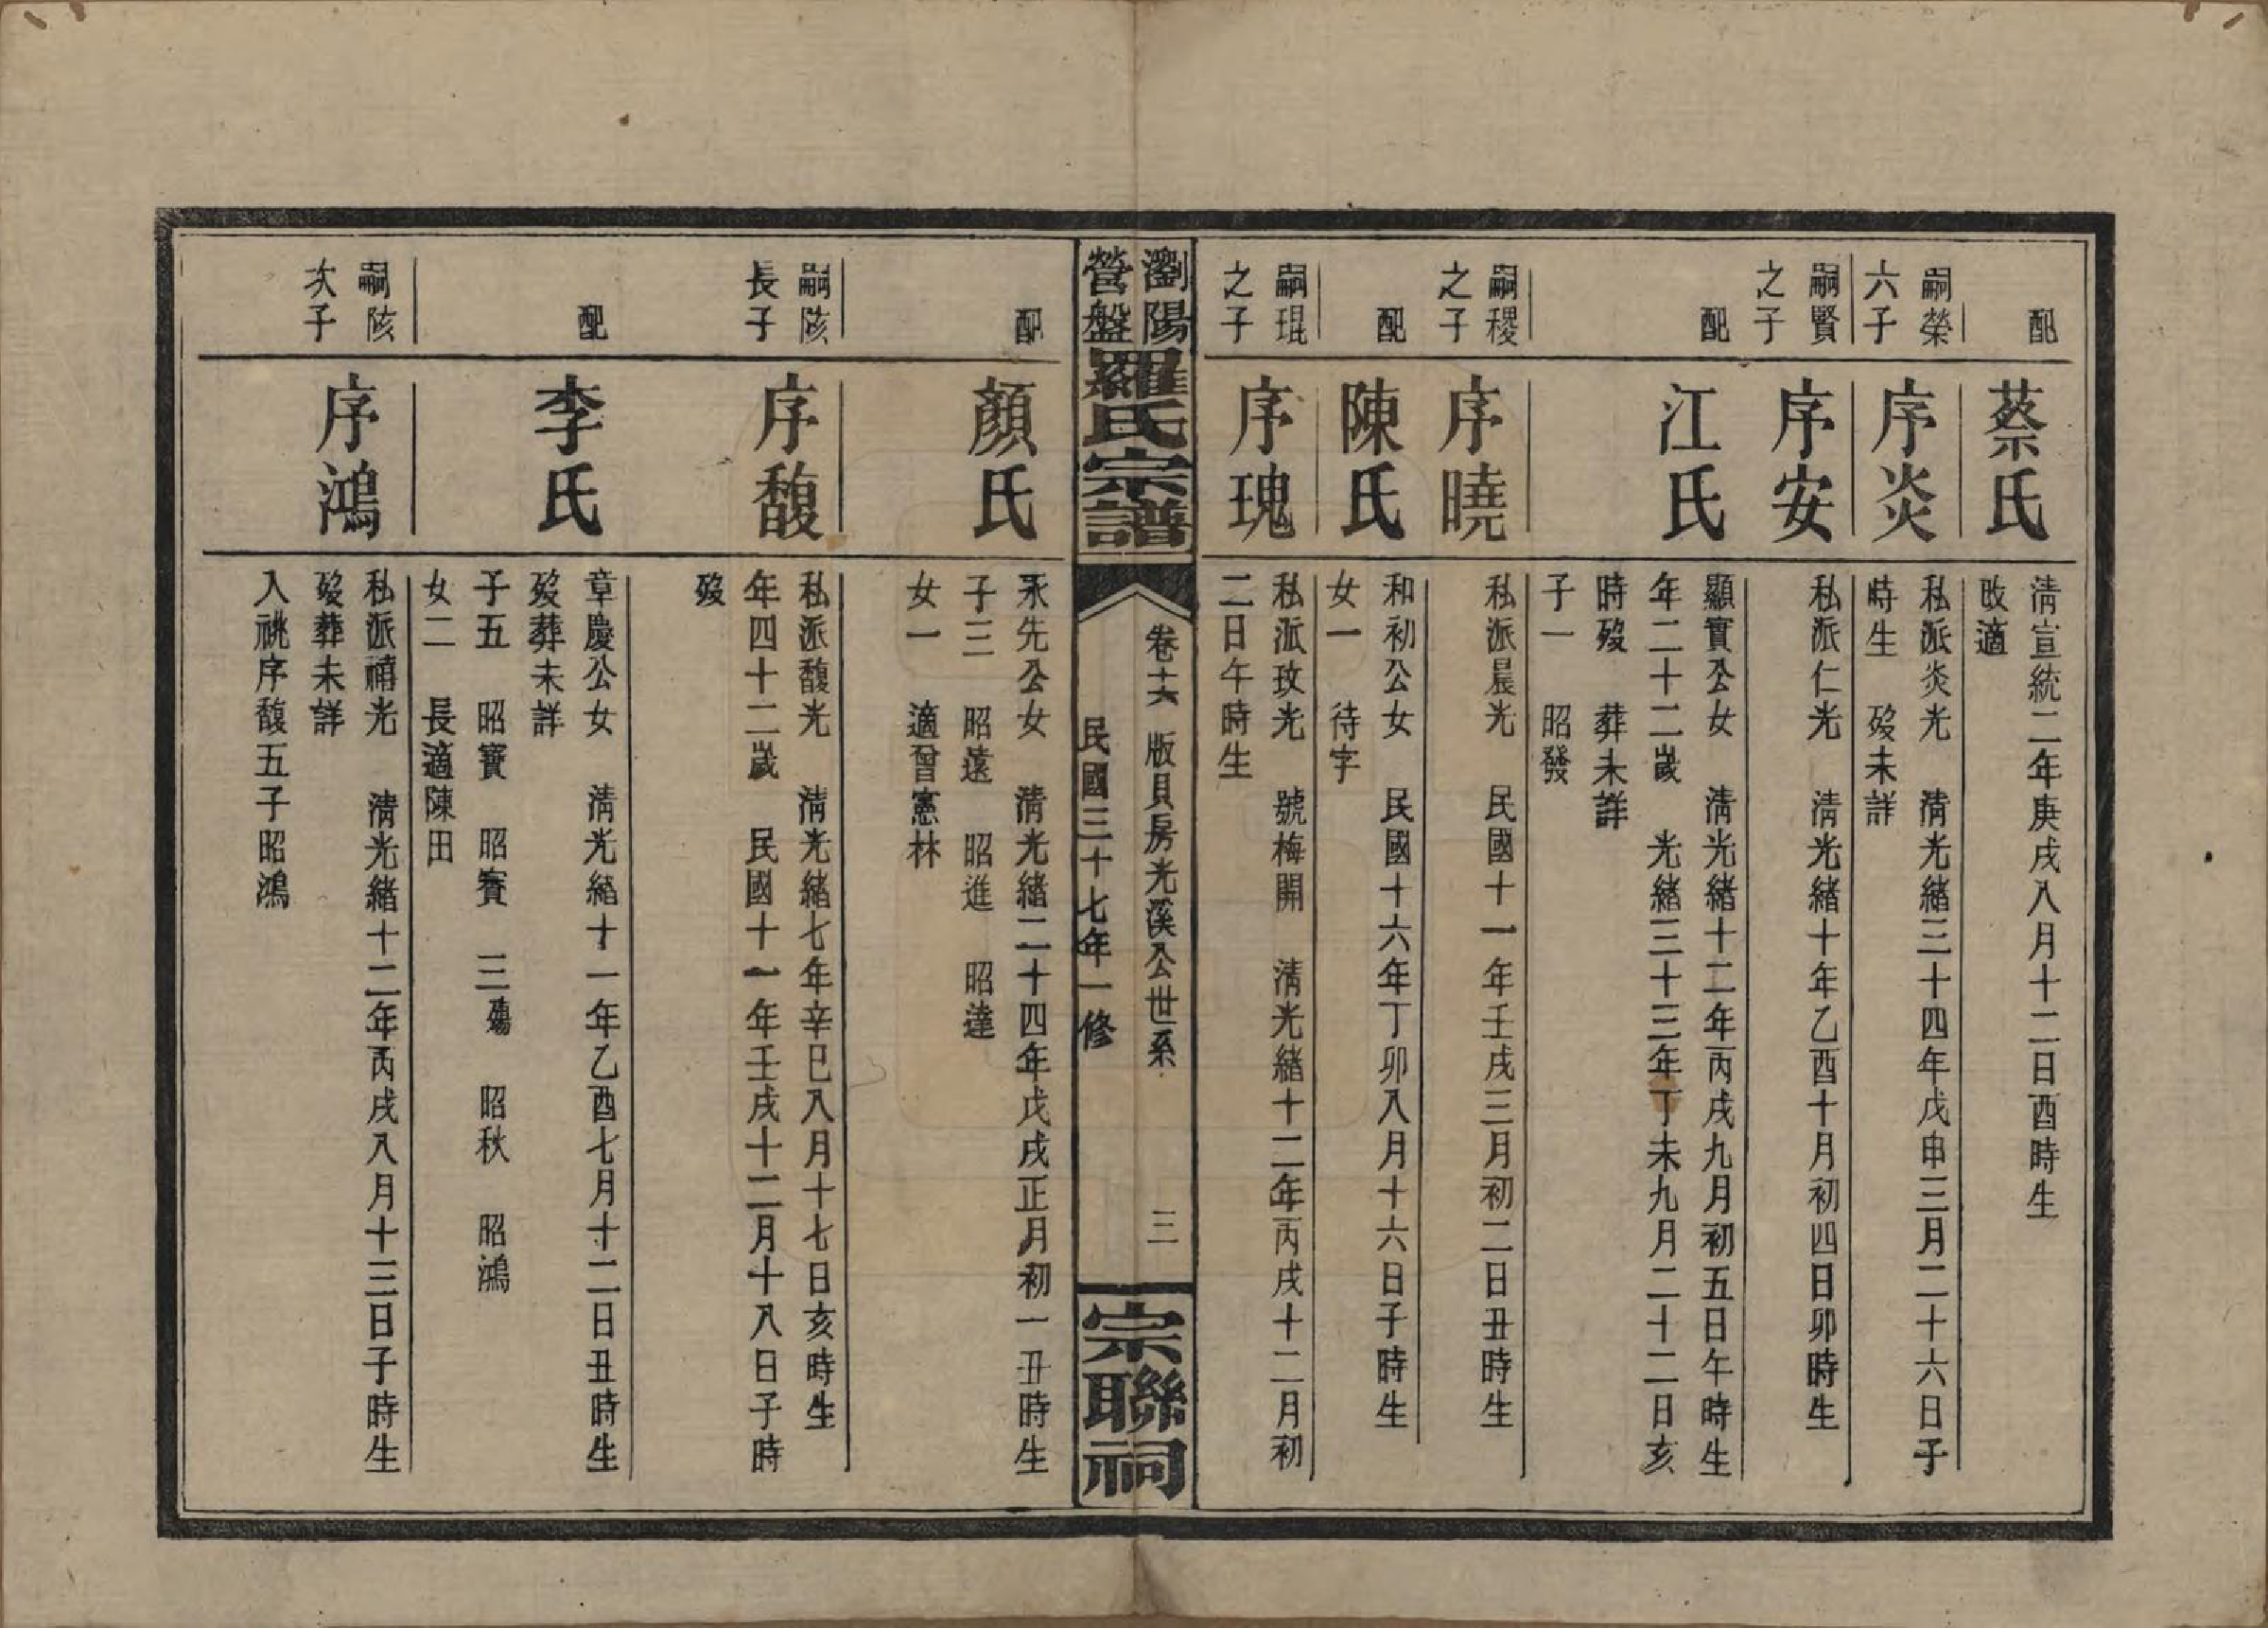 配
蔡氏
清宣統二年庚戌八月十二日酉時生
改適
嗣榮
六子
序炎
私派炎光　清光緒三十四年戊申三月二十六日子
時生　歿未詳
嗣賢
之子
序安
私派仁光　清光緒十年乙酉十月初四日卯時生
配
江氏
顯實公女　清光緒十二年丙戌九月初五日午時生
年二十二歲　光緒三十三年丁未九月二十二日亥
時歿　葬未詳
子一　昭發
嗣稷
之子
序曉
私派晨光　民國十一年壬戌三月初二日丑時生
配
陳氏
和初公女　民國十六年丁卯八月十六日子時生
女一　待字
嗣琨
之子
序瑰
私派玫光　號梅開　清光緒十二年丙戌十二月初
二日午時生
瀏陽
營盤
羅氏宗譜
卷十六　版貝房光溪公世系
三
民國三十七年一修
宗聯祠
配
顏氏
永先公女　清光緒二十四年戊戌正月初一丑時生
子三　昭遠　昭進　昭達
女一　適曾憲林
嗣陔
長子
序馥
私派馥光　清光緒七年辛巳八月十七日亥時生
年四十二歲　民國十一年壬戌十二月十八日子時
歿
配
李氏
章慶公女　清光緒十一年乙酉七月十二日丑時生
歿葬未詳
子五　昭寶　昭賓　三殤　昭秋　昭鴻
女二　長適陳田
嗣陔
次子
序鴻
私派禧光　清光緒十二年丙戌八月十三日子時生
歿葬未詳
入祧序馥五子昭鴻